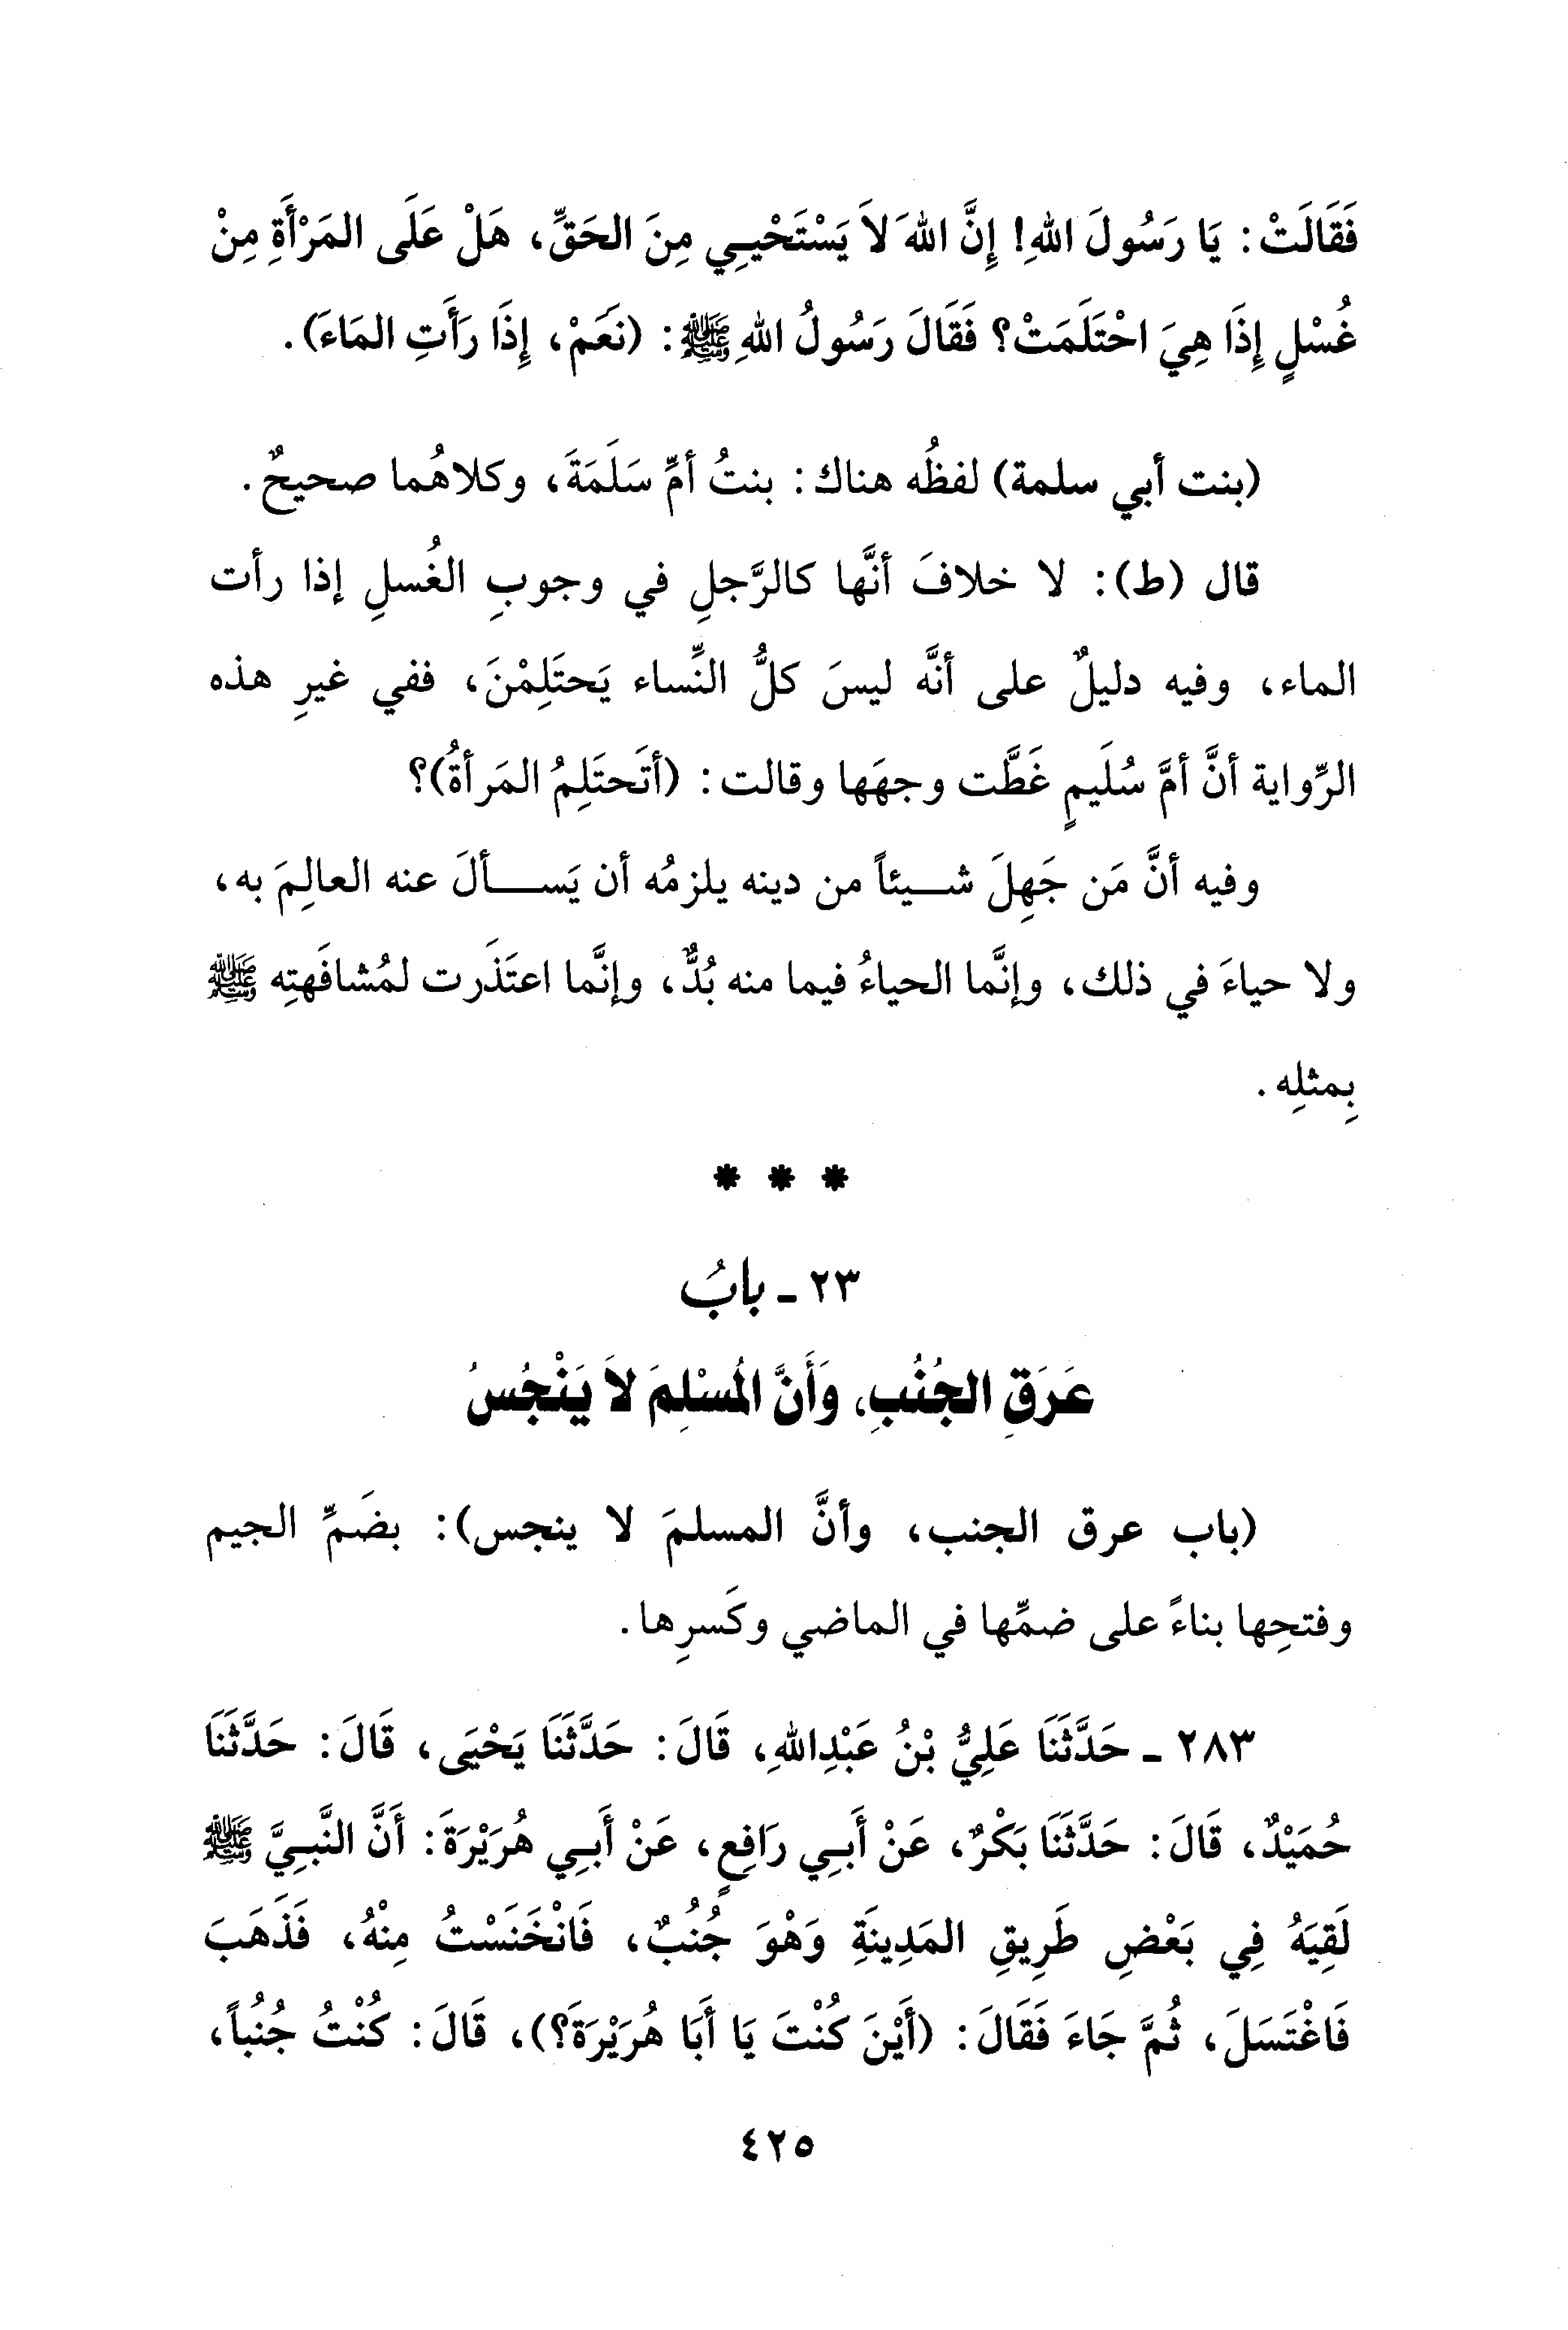 فَقَالَتْ: يَا رَسُولَ اللهِ! إِنَّ اللهَ لاَ يَسْتَحْيِي مِنَ الحَقِّ، هَلْ عَلَى المَرْأَةِ مِنْ
غُسْلٍ إِذَا هِيَ احْتَلَمَتْ؟ فَقَالَ رَسُولُ اللهِ ﷺ: (نَعَمْ، إِذَا رَأَتِ المَاءَ).
(بنت أبي سلمة) لفظُه هناك: بنتُ أمِّ سَلَمَةَ، وكلاهُما صحيحٌ.
قال (ط): لا خلافَ أنَّها كالرَّجلِ في وجوبِ الغُسلِ إذا رأت
الماء، وفيه دليلٌ على أنَّه ليسَ كلُّ النِّساء يَحتَلِمْنَ، ففي غيرِ هذه
الرِّواية أنَّ أمَّ سُلَيمٍ غَطَّت وجهَها وقالت: (أتَحتَلِمُ المَرأةُ)؟
وفيه أنَّ مَن جَهِلَ شيئاً من دينه يلزمُه أن يَسألَ عنه العالِمَ به،
ولا حياءَ في ذلك، وإنَّما الحياءُ فيما منه بُدٌّ، وإنَّما اعتَذَرت لمُشافَهتِه ﷺ
بِمثلِه.
* * *
٢٣ - بابُ
عَرَقِ الجُنُبِ، وَأَنَّ المُسْلِمَ لاَ يَنْجُسُ
(باب عرق الجنب، وأنَّ المسلمَ لا ينجس): بضَمِّ الجيم
وفتحِها بناءً على ضمِّها في الماضي وكَسرِها.
٢٨٣ - حَدَّثَنَا عَلِيُّ بْنُ عَبْدِاللهِ، قَالَ: حَدَّثَنَا يَحْيَى، قَالَ: حَدَّثَنَا
حُمَيْدٌ، قَالَ: حَدَّثَنَا بَكْرٌ، عَنْ أَبِي رَافِعٍ، عَنْ أَبِي هُرَيْرَةَ: أَنَّ النَّبِيَّ ﷺ
لَقِيَهُ فِي بَعْضِ طَرِيقِ المَدِينَةِ وَهْوَ جُنُبٌ، فَانْخَنَسْتُ مِنْهُ، فَذَهَبَ
فَاغْتَسَلَ، ثُمَّ جَاءَ فَقَالَ: (أَيْنَ كُنْتَ يَا أَبَا هُرَيْرَةَ؟)، قَالَ: كُنْتُ جُنُباً،
٤٢٥